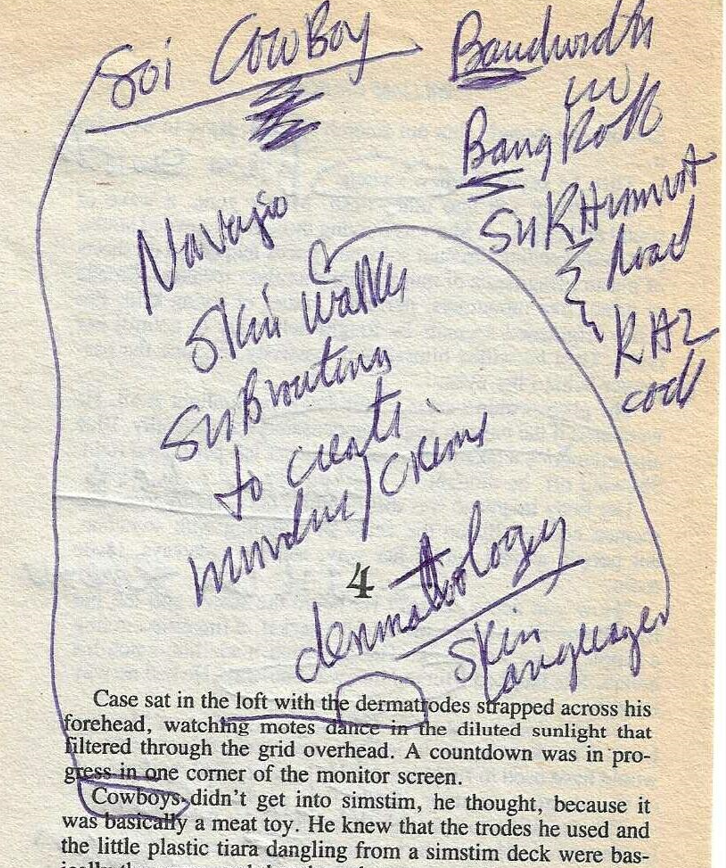 Soi CowBoy
Bandwidth
in
BangKoK
SuKHumvit
Road
Navajo
Skin Walker
SuBroutine
to create
murder/crime
4
dermatology
skin
languages
Case sat in the loft with the dermatrodes strapped across his
forehead, watching motes dance in the diluted sunlight that
filtered through the grid overhead. A countdown was in pro-
gress in one corner of the monitor screen.
Cowboys didn't get into simstim, he thought, because it
was basically a meat toy. He knew that the trodes he used and
the little plastic tiara dangling from a simstim deck were bas-